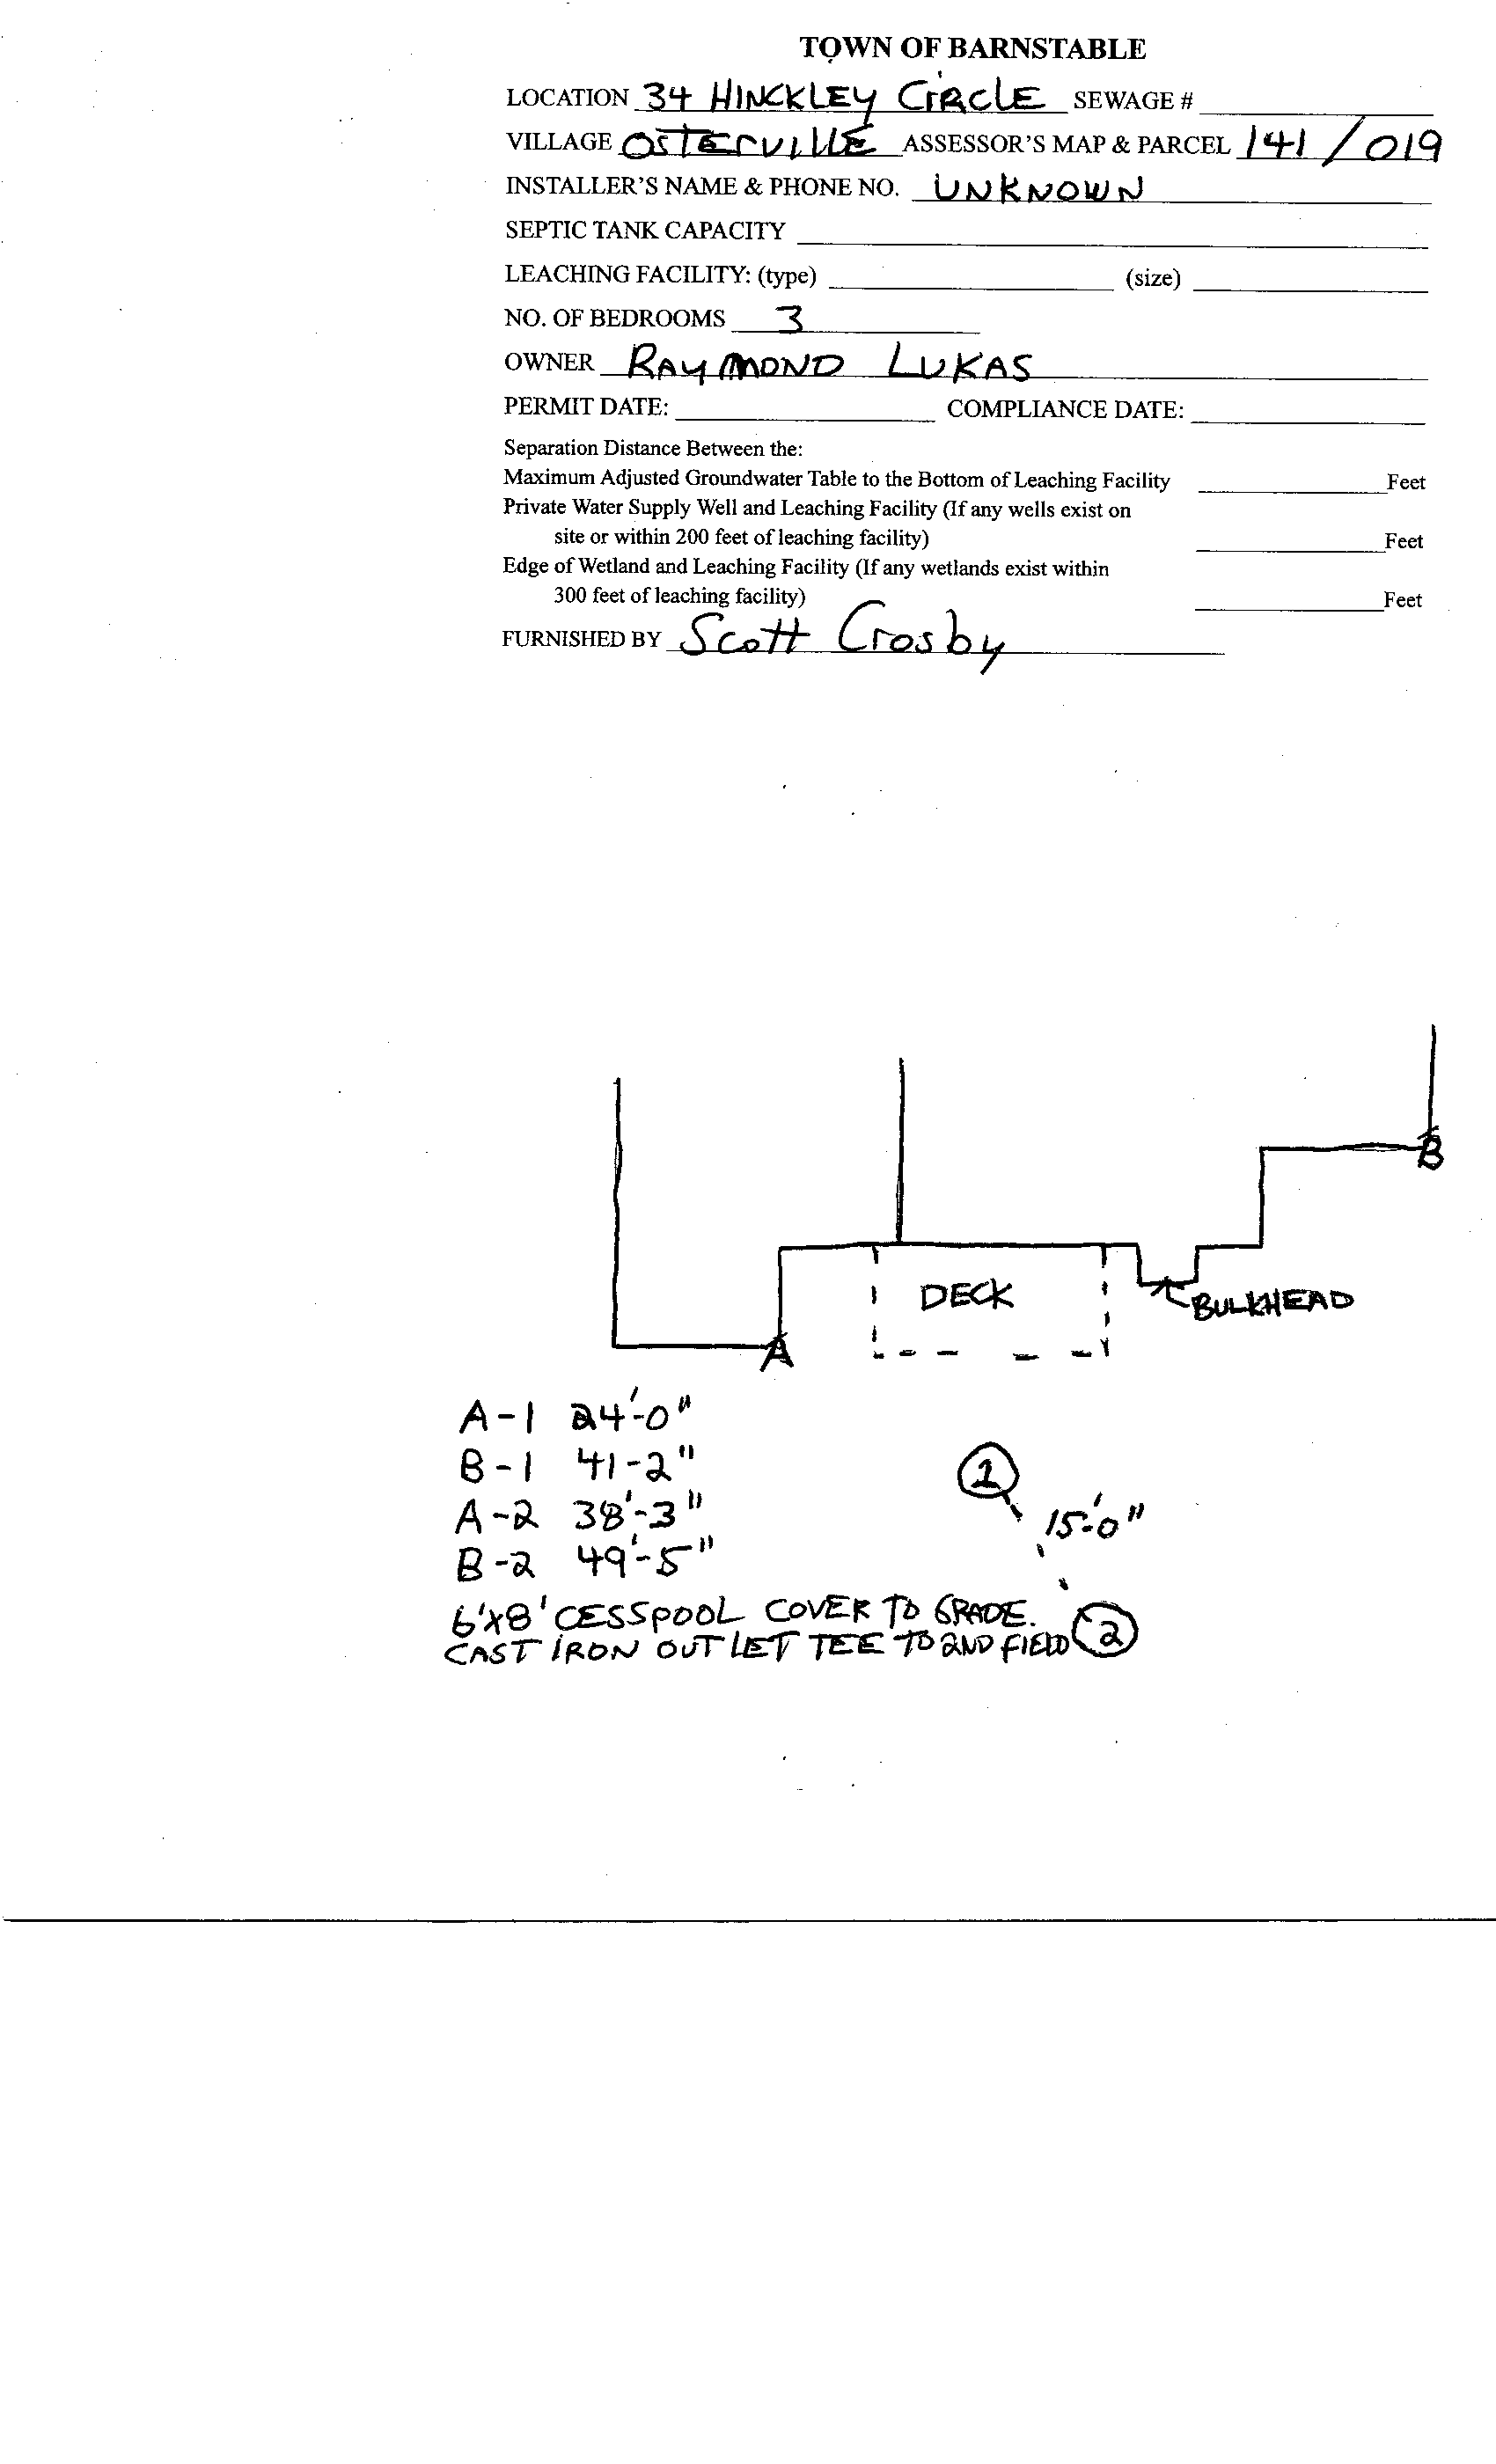 TOWN OF BARNSTABLE
LOCATION 34 HINCKLEY CIRCLE SEWAGE #
VILLAGE OSTERVILLE ASSESSOR'S MAP & PARCEL 141 / 019
INSTALLER'S NAME & PHONE NO. UNKNOWN
SEPTIC TANK CAPACITY
LEACHING FACILITY: (type) (size)
NO. OF BEDROOMS 3
OWNER RAYMOND LUKAS
PERMIT DATE: COMPLIANCE DATE:
Separation Distance Between the:
Maximum Adjusted Groundwater Table to the Bottom of Leaching Facility Feet
Private Water Supply Well and Leaching Facility (If any wells exist on
site or within 200 feet of leaching facility) Feet
Edge of Wetland and Leaching Facility (If any wetlands exist within
300 feet of leaching facility) Feet
FURNISHED BY Scott Crosby
B
DECK
BULKHEAD
A
A-1 24'-0"
B-1 41-2"
1
A-2 38'-3"
15'-0"
B-2 49'-5"
6'X8' CESSPOOL COVER TO GRADE.
CAST IRON OUTLET TEE TO 2ND FIELD
2